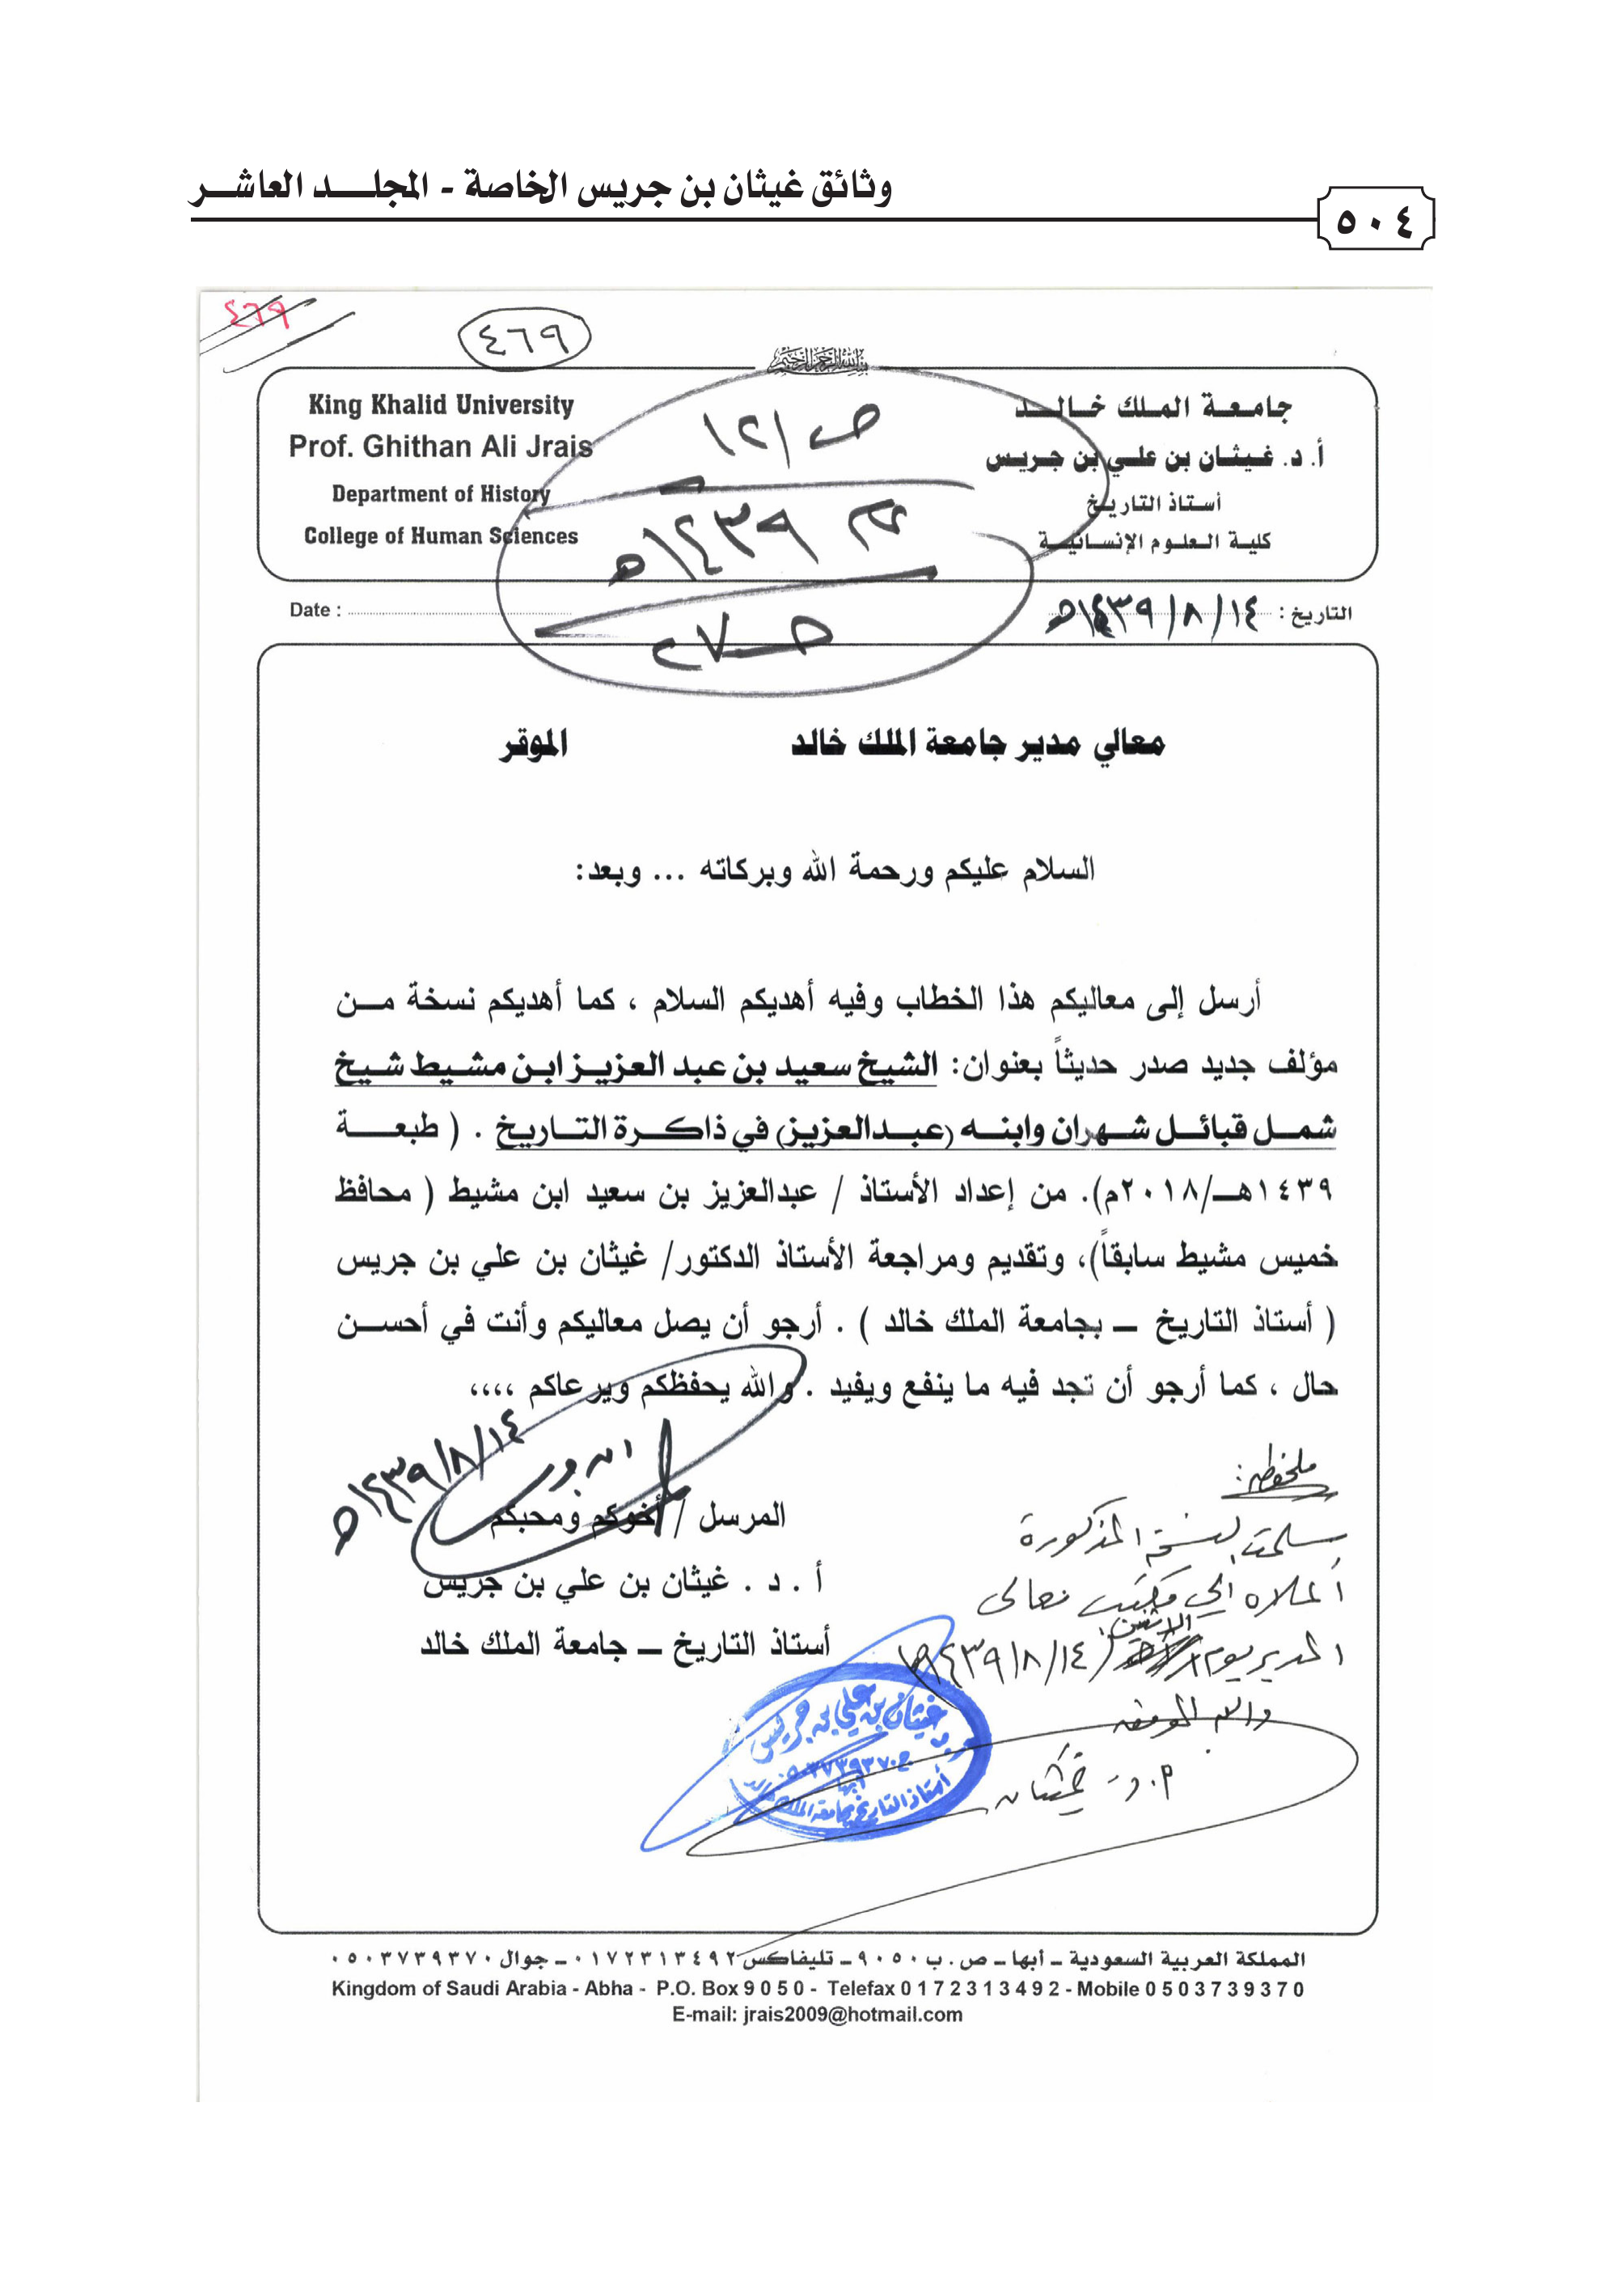 وثائق غيثان بن جريس الخاصة - المجلـــد العاشــر
٥٠٤
٤٦٩
٤٦٩
بسم الله الرحمن الرحيم
جامعة الملك خالد
أ. د. غيثان بن علي بن جريس
أستاذ التاريخ
كلية العلوم الإنسانية
King Khalid University
Prof. Ghithan Ali Jrais
Department of History
College of Human Sciences
ص/١٢
١٤٣٩هـ
التاريخ : ١٤/٨/١٤٣٩هـ
Date :
معالي مدير جامعة الملك خالد الموقر
السلام عليكم ورحمة الله وبركاته ... وبعد:
أرسل إلى معاليكم هذا الخطاب وفيه أهديكم السلام ، كما أهديكم نسخة مـن
مؤلف جديد صدر حديثاً بعنوان: الشيخ سعيد بن عبد العزيز ابن مشيط شيخ
شمل قبائل شهران وابنه (عبدالعزيز) في ذاكرة التاريخ . ( طبعـــة
١٤٣٩هــ/٢٠١٨م). من إعداد الأستاذ / عبدالعزيز بن سعيد ابن مشيط ( محافظ
خميس مشيط سابقاً)، وتقديم ومراجعة الأستاذ الدكتور/ غيثان بن علي بن جريس
( أستاذ التاريخ – بجامعة الملك خالد ) . أرجو أن يصل معاليكم وأنت في أحسـن
حال ، كما أرجو أن تجد فيه ما ينفع ويفيد . والله يحفظكم ويرعاكم ،،،،
١٤/٨/١٤٣٩هـ
المرسل / أخوكم ومحبكم
أ . د . غيثان بن علي بن جريس
أستاذ التاريخ – جامعة الملك خالد
ملحوظة:
سلمت النسخة المذكورة
أعلاه إلى مكتب معالي
المدير يوم الاثنين ١٤/٨/١٤٣٩هـ
والله الموفق
أ. د. غيثان
غيثان بن علي بن جريس
ج ٠٥٠٣٧٣٩٣٧٠
أبها
أستاذ التاريخ بجامعة الملك خالد
المملكة العربية السعودية – أبها – ص . ب ٩٠٥٠ – تليفاكس ٠١٧٢٣١٣٤٩٢ – جوال ٠٥٠٣٧٣٩٣٧٠
Kingdom of Saudi Arabia - Abha - P.O. Box 9 0 5 0 - Telefax 0 1 7 2 3 1 3 4 9 2 - Mobile 0 5 0 3 7 3 9 3 7 0
E-mail: jrais2009@hotmail.com